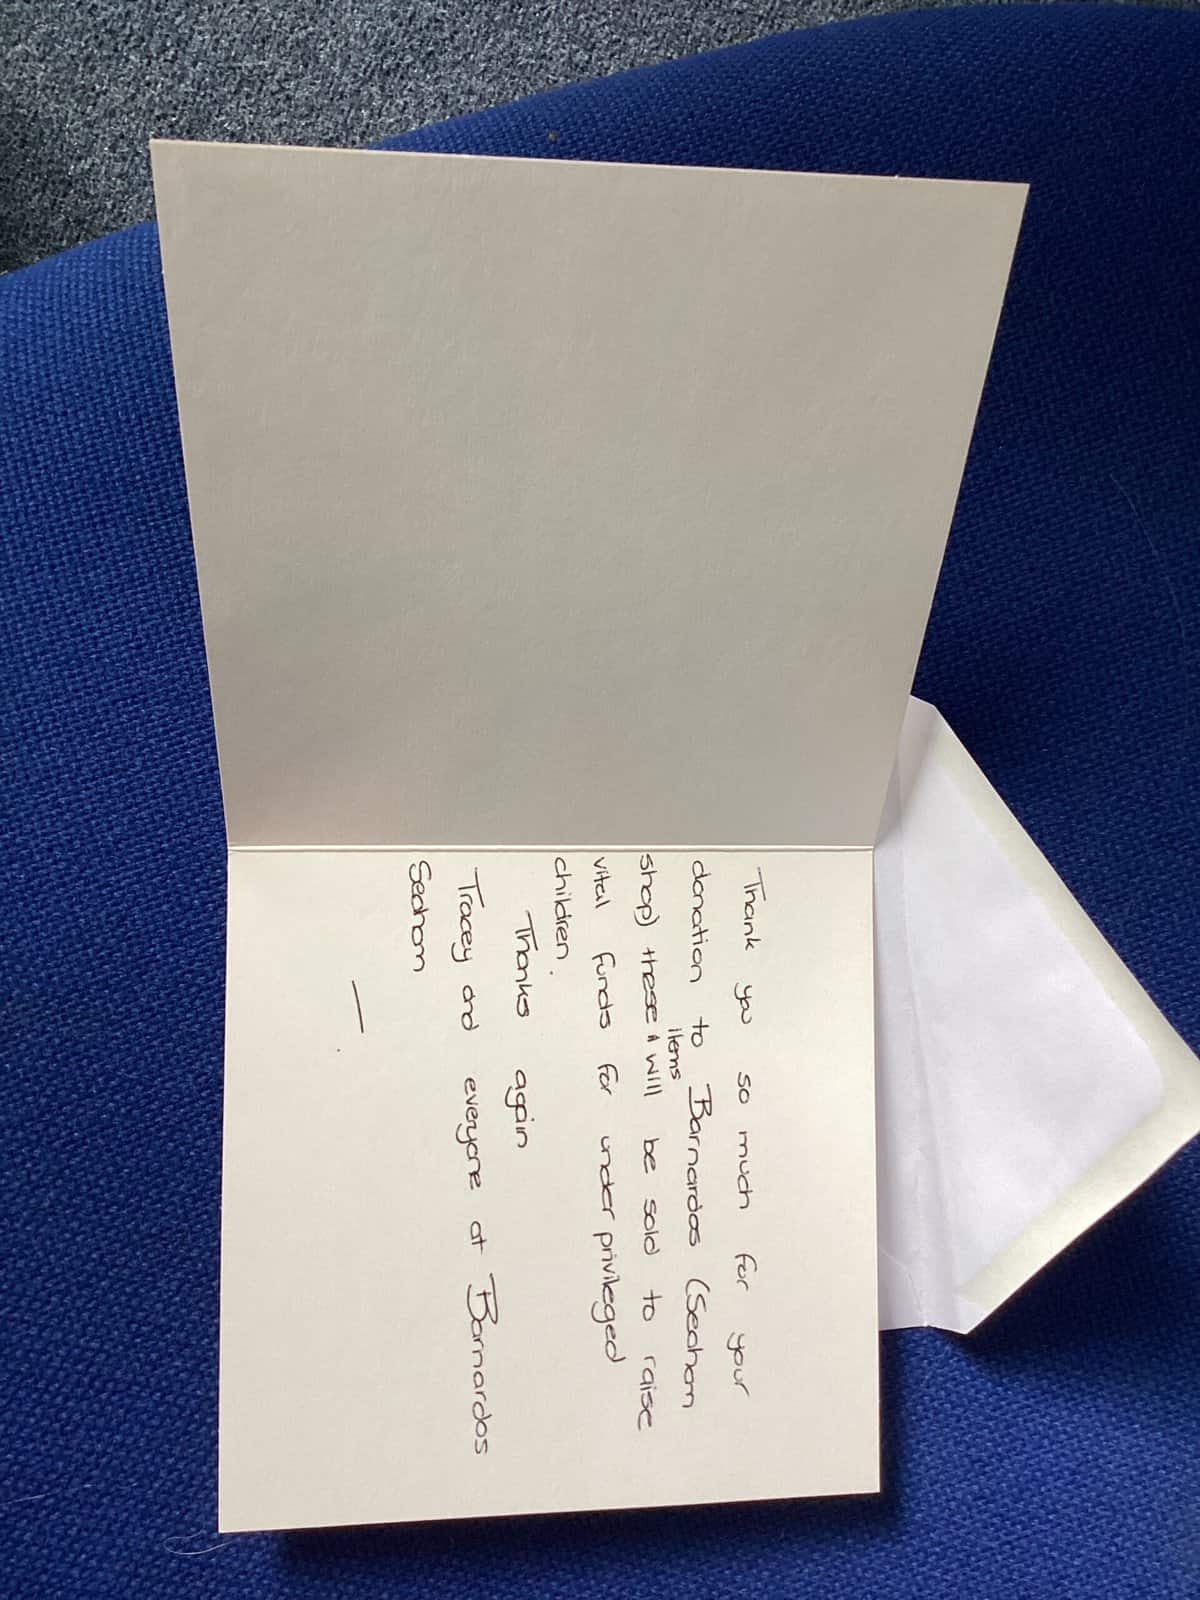 Thank you so much for your
donation to Barnardos (Seaham
shop) these items will be sold to raise
vital funds for under privileged
children.
Thanks again
Tracey and everyone at Barnardos
Seaham